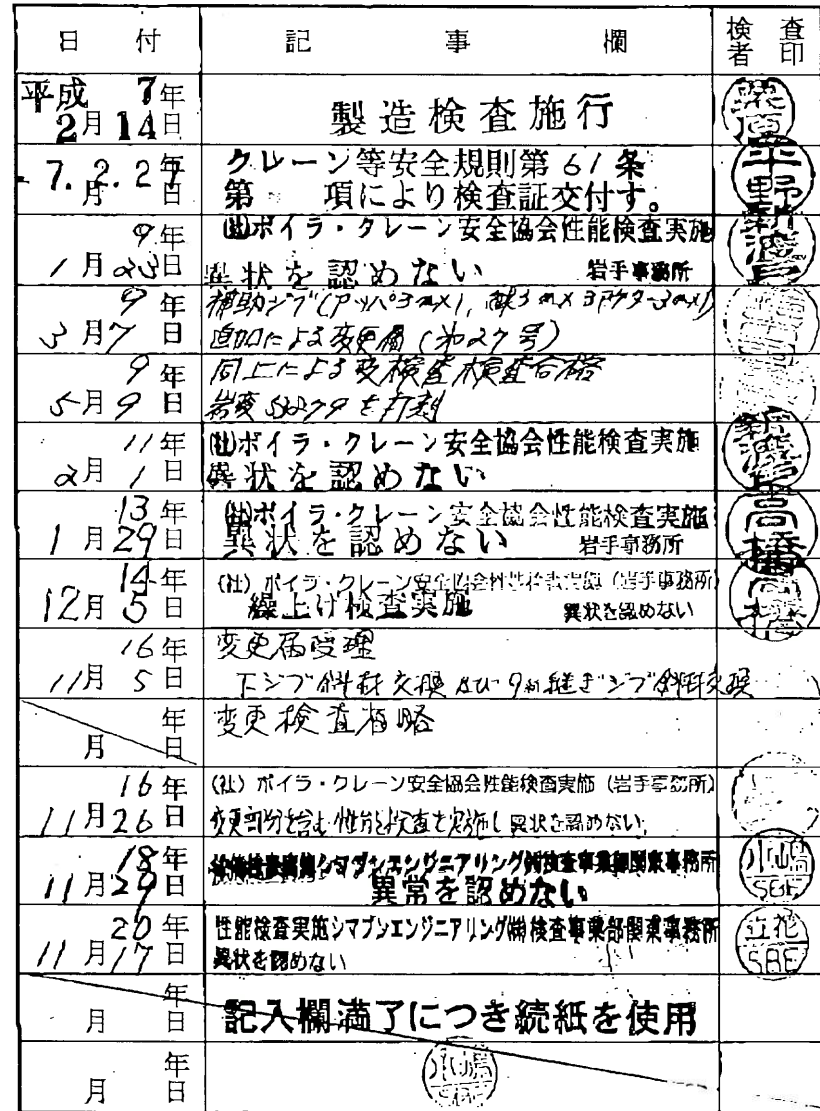 日 付 記 事 欄 検査者印
平成 7年
2月14日
製造検査施行
栗原
7.2.27 年月日
クレーン等安全規則第61条
第 項により検査証交付す。
平野
9年
1月23日
(社)ボイラ・クレーン安全協会性能検査実施
異状を認めない 岩手事務所
新渡戸
9年
3月7日
補助ジブ
追加による変更届(第27号)
9年
5月9日
同上による変検査検査合格
を打刻
11年
2月1日
(社)ボイラ・クレーン安全協会性能検査実施
異状を認めない
13年
1月29日
(社)ボイラ・クレーン安全協会性能検査実施
異状を認めない 岩手事務所
高橋
14年
12月5日
(社)ボイラ・クレーン安全協会性能検査実施(岩手事務所)
繰上げ検査実施 異状を認めない
高橋
16年
11月5日
変更届受理
下ジブ斜材交換及び9m継ぎジブ斜材交換
年
月 日
変更検査省略
16年
11月26日
(社)ボイラ・クレーン安全協会性能検査実施(岩手事務所)
変更部分を含む性能検査を実施し異状を認めない
18年
11月29日
性能検査実施シマブンエンジニアリング㈱検査事業部関東事務所
異常を認めない
小嶋
SBE
20年
11月17日
性能検査実施シマブンエンジニアリング㈱検査事業部関東事務所
異状を認めない
立花
SBE
年
月 日
記入欄満了につき続紙を使用
年
月 日
小嶋
SBE